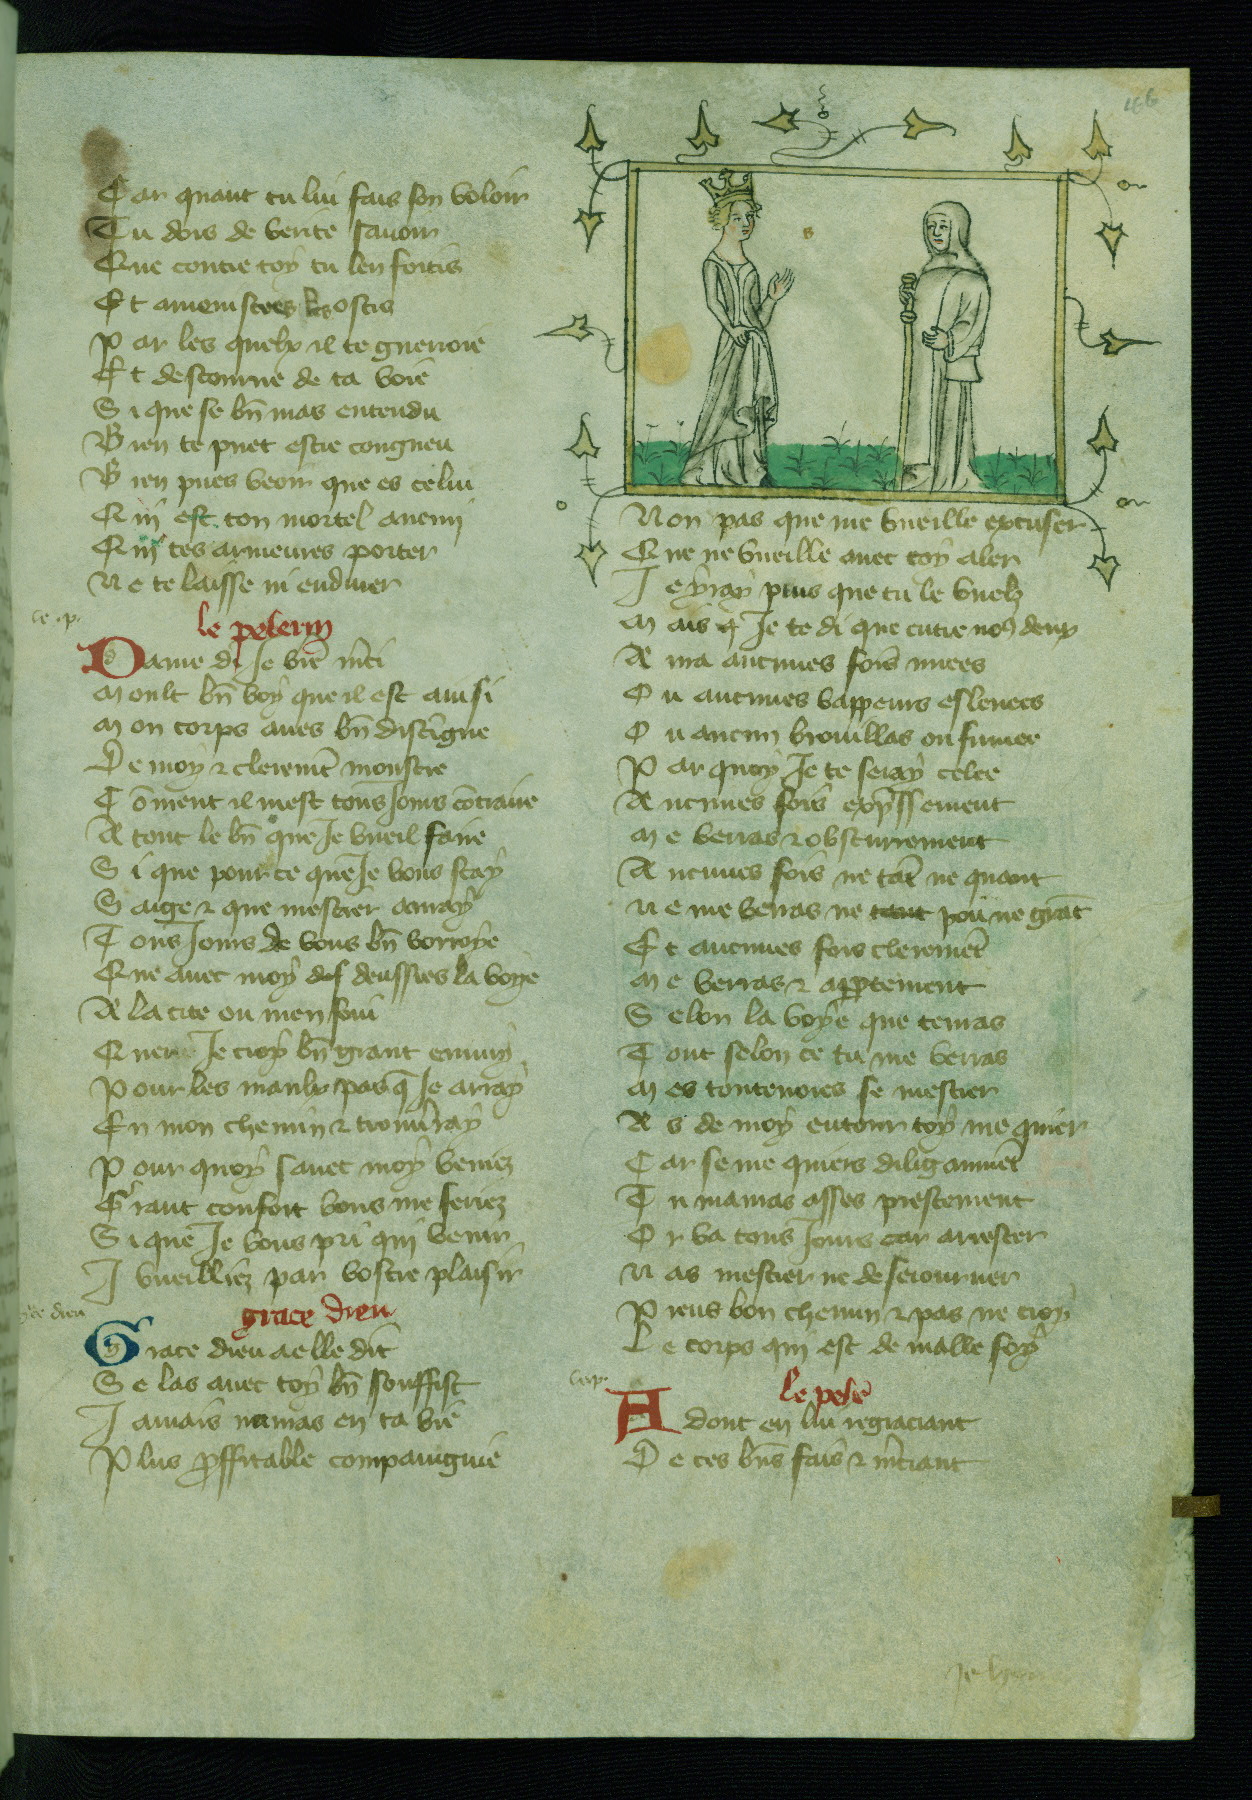 46
Car quant tu lui fais son voloir
Tu dois de verite savoir
Que contre toy tu len fortis
Et amonistres les ostis
Par les quelx il te guerroie
Et destourne de ta voie
Si que se bn̄ mas entendu
Bien te puet estre congneu
Bien pues veoir que es celui
Qui est ton mortel anemi
Qui tes armeures porter
Ne te laisse ni endurer
le .p.
le pelerin
Dame di Je vr̄e m̄ci
Moult bn̄ voy que il est ainsi
Mon corps aves bn̄ distīgue
De moy & cleremēt monstre
Cōment il mest tous Jours cōtraire
A tout le bn̄ que Je vueil faire
Si que pour ce que Je vous scay
Saige & que mestier auray
Tous Jours de vous bn̄ vorroye
Que avec moy deussies la voye
A la cite ou men sui
Quer Je croy bn̄ grant ennuy
Pour les maulx pas q̄ Je array
En mon chemin & trouveray
Pour quoy savec moy veniez
Grant confort vous me feriez
Si que Je vous pri qui venir
I vueilliez par vostre plaisir
grace dieu
ḡce dieu
Grace dieu a elle dit
Se las avec toy bn̄ souffist
Jamais naras en ta vie
Plus proffitable compaignie
Non pas que me vueille excuser
Que ne vueille avec toy aler
Je yray puis que tu le vuelz
Mais q̄ Je te di que entre nos deux
A ma aucunes fois nuees
Ou aucunes vappeurs eslevees
Ou aucun brouillas ou fumee
Par quoy Je te seray celee
Aucunes fois exp̄ssement
Me verras & obscurement
Aucunes fois ne tāt ne quant
Ne me verras ne pou ne grāt
Et aucunes fois cleremēt
Me verras & appertement
Selon la voye que tenras
Tout selon ce tu me verras
Mes toutevoies se mestier
As de moy entour toy me quier
Car se me quiers diligammēt
Tu maras asses prestement
Or va tous Jours car arester
Nas mestier ne de seiourner
Prens bon chemin & pas ne croy
Le corps qui est de malle foy
le .p.
le pelē
Adont en lui regraciant
De ces bn̄s fais & m̄ciant